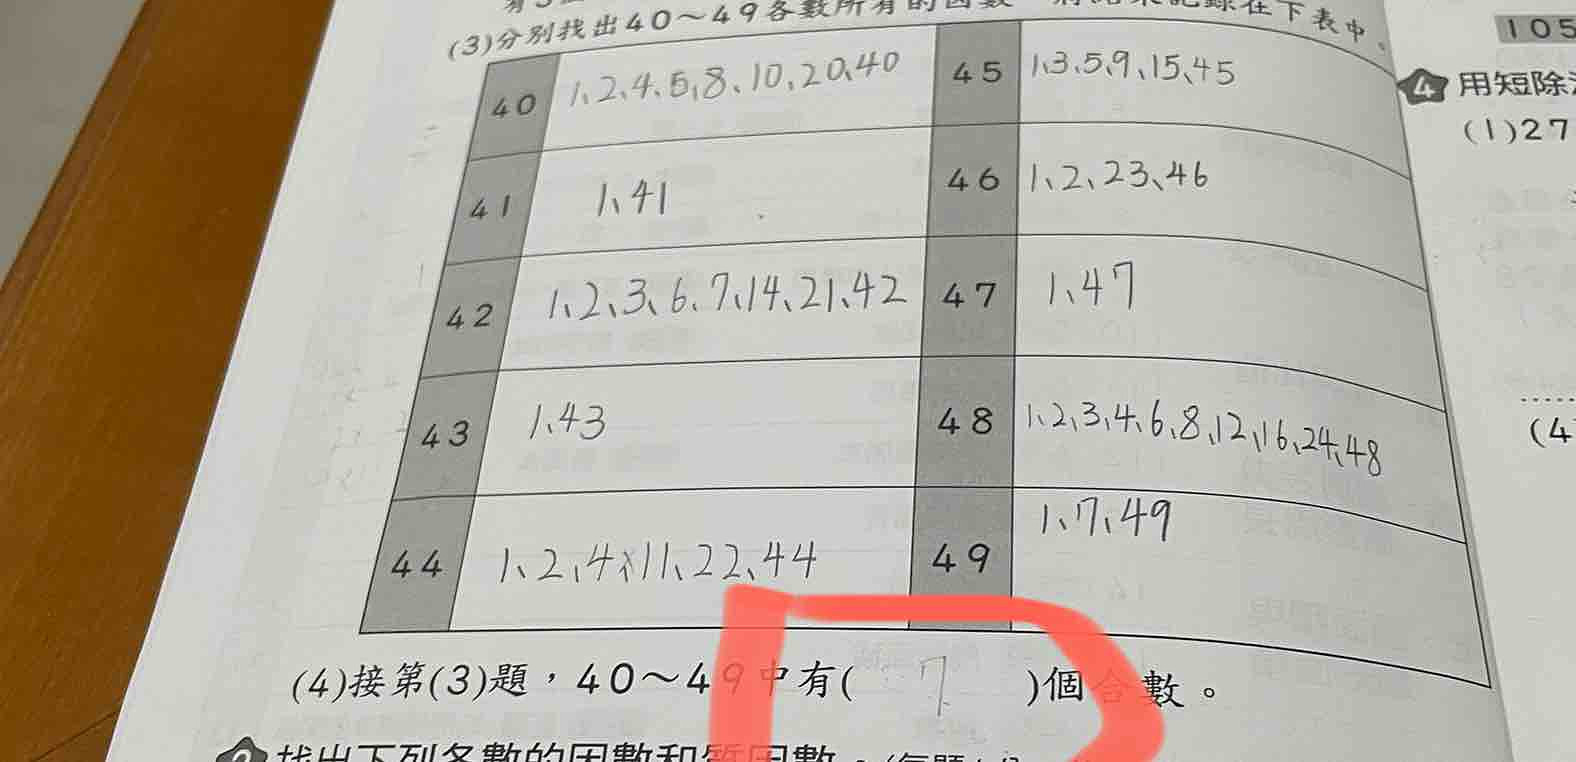 (3)分別找出40～49各數所有的因數 在下表中。
40 1、2、4、5、8、10、20、40
45 1、3、5、9、15、45
41 1、41
46 1、2、23、46
42 1、2、3、6、7、14、21、42
47 1、47
43 1、43
48 1、2、3、4、6、8、12、16、24、48
44 1、2、4、11、22、44
49 1、7、49
(4)接第(3)題，40～49中有( 7 )個合數。
找出下列各數的因數和質因數。
105
4 用短除
(1)27
(4